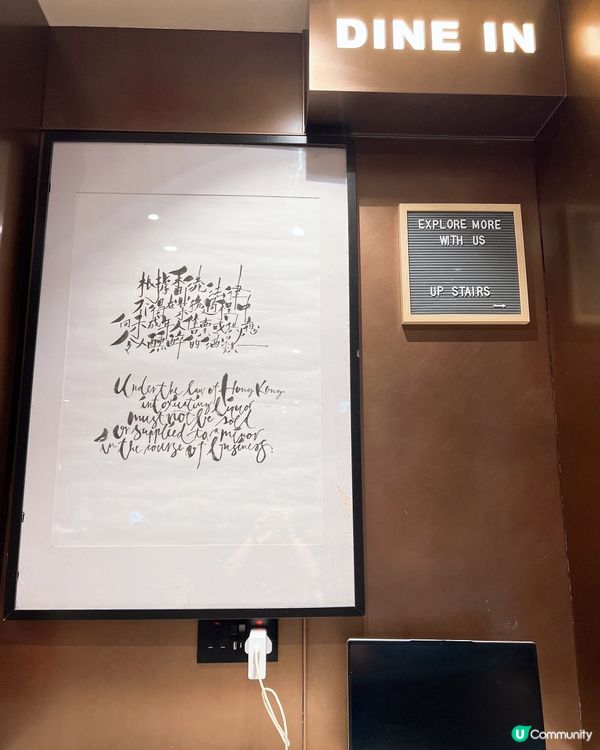 DINE IN
EXPLORE MORE
WITH US
UP STAIRS
根據香港法律
不得在業務過程中
向未成年人售賣或供應
令人醺醉的酒類
Under the law of Hong Kong
intoxicating liquor
must not be sold
or supplied to a minor
in the course of business.
U Community